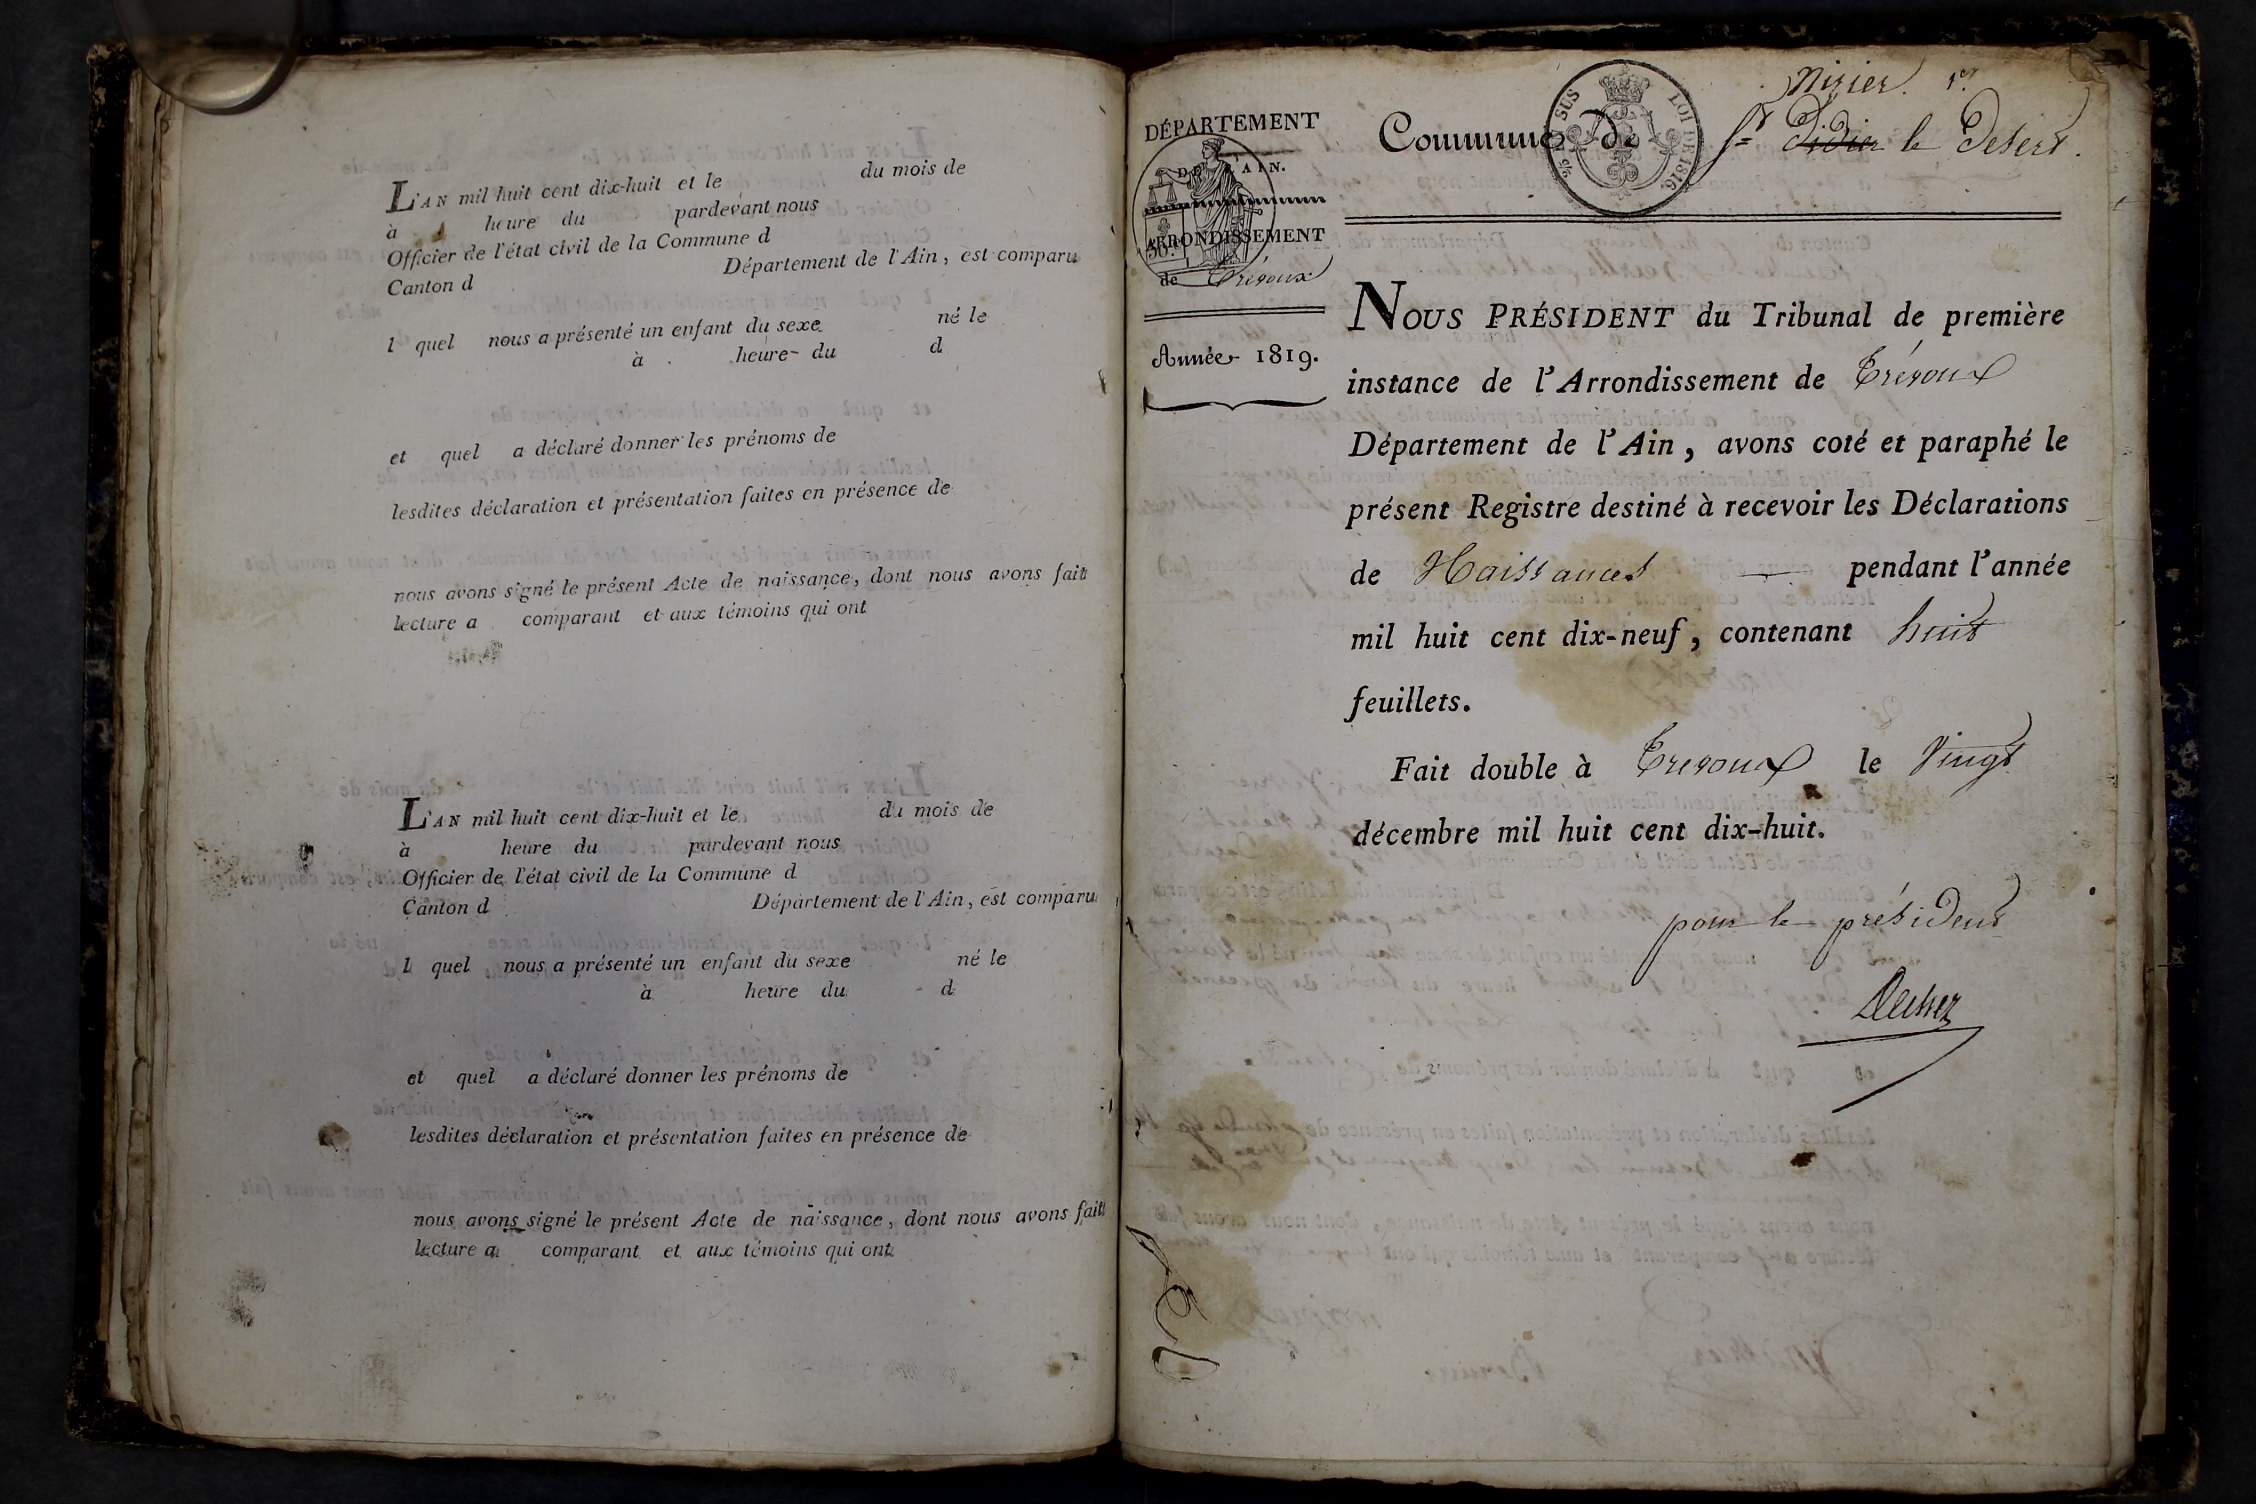 L'AN mil huit cent dix-huit et le du mois de
à heure du pardevant nous
Officier de l'état civil de la Commune d
Canton d Département de l'Ain, est comparu
l quel nous a présenté un enfant du sexe né le
à heure du d
et quel a déclaré donner les prénoms de
lesdites déclaration et présentation faites en présence de
nous avons signé le présent Acte de naissance, dont nous avons fait
lecture a comparant et aux témoins qui ont
L'AN mil huit cent dix-huit et le du mois de
à heure du pardevant nous
Officier de l'état civil de la Commune d
Canton d Département de l'Ain, est comparu
l quel nous a présenté un enfant du sexe né le
à heure du d
et quel a déclaré donner les prénoms de
lesdites déclaration et présentation faites en présence de
nous avons signé le présent Acte de naissance, dont nous avons fait
lecture a comparant et aux témoins qui ont
DÉPARTEMENT
DE L'AIN.
ARRONDISSEMENT
de Trévoux
Année 1819.
Nizier. 1er
Commune de St Didier le Desert.
SUS LOI DE 1816.
NOUS PRÉSIDENT du Tribunal de première
instance de l'Arrondissement de Trévoux
Département de l'Ain, avons coté et paraphé le
présent Registre destiné à recevoir les Déclarations
de Naissances — pendant l'année
mil huit cent dix-neuf, contenant huit
feuillets.
Fait double à Trevoux le Vingt
décembre mil huit cent dix-huit.
pour le président